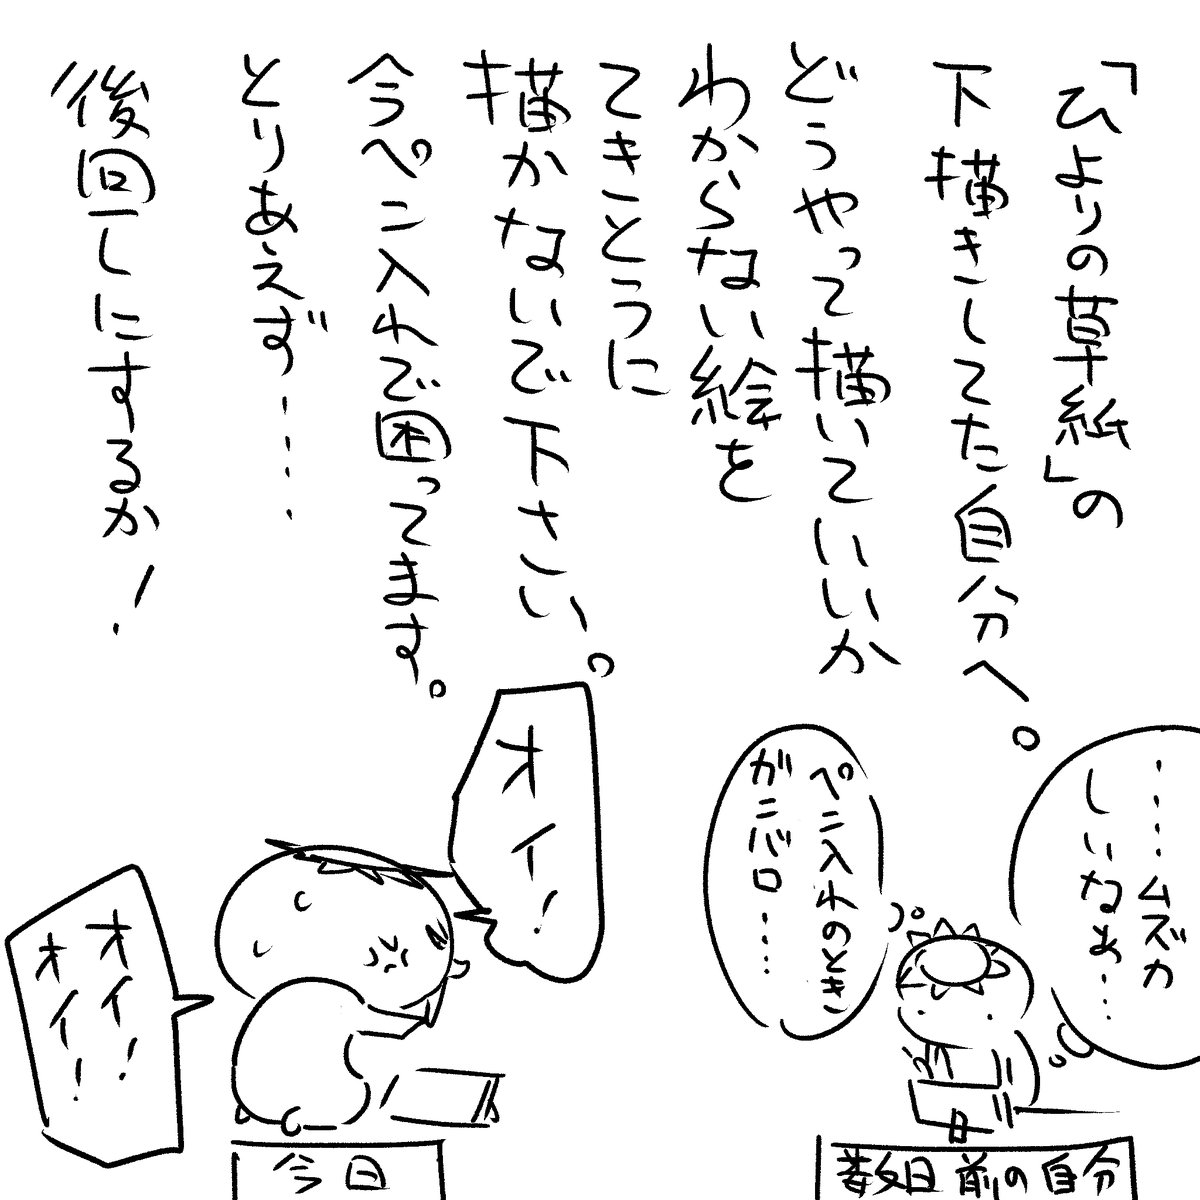 「ひよりの草紙」の
下描きしてた自分へ。
どうやって描いていいか
わからない絵を
てきとうに
描かないで下さい。
今ペン入れで困ってます。
とりあえず……
後回しにするか！
……ムズカ
しいなぁ…
ペン入れのとき
ガンバロ……
数日前の自分
オイ！
オイ！
オイ！
今日